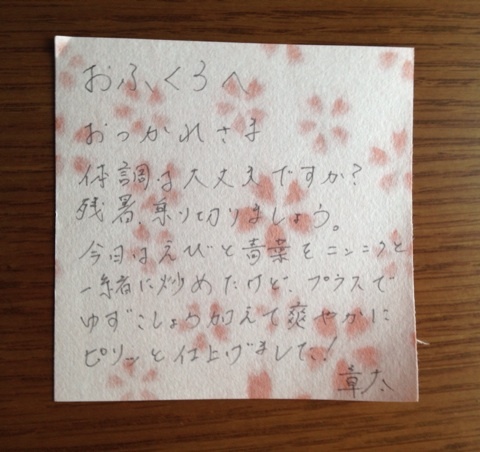 おふくろへ
おつかれさま
体調は大丈夫ですか?
残暑、乗り切りましょう。
今日はえびと青菜をニンニクと
一緒に炒めたけど、プラスで
ゆずこしょう加えて爽やかに
ピリッと仕上げました!
章太